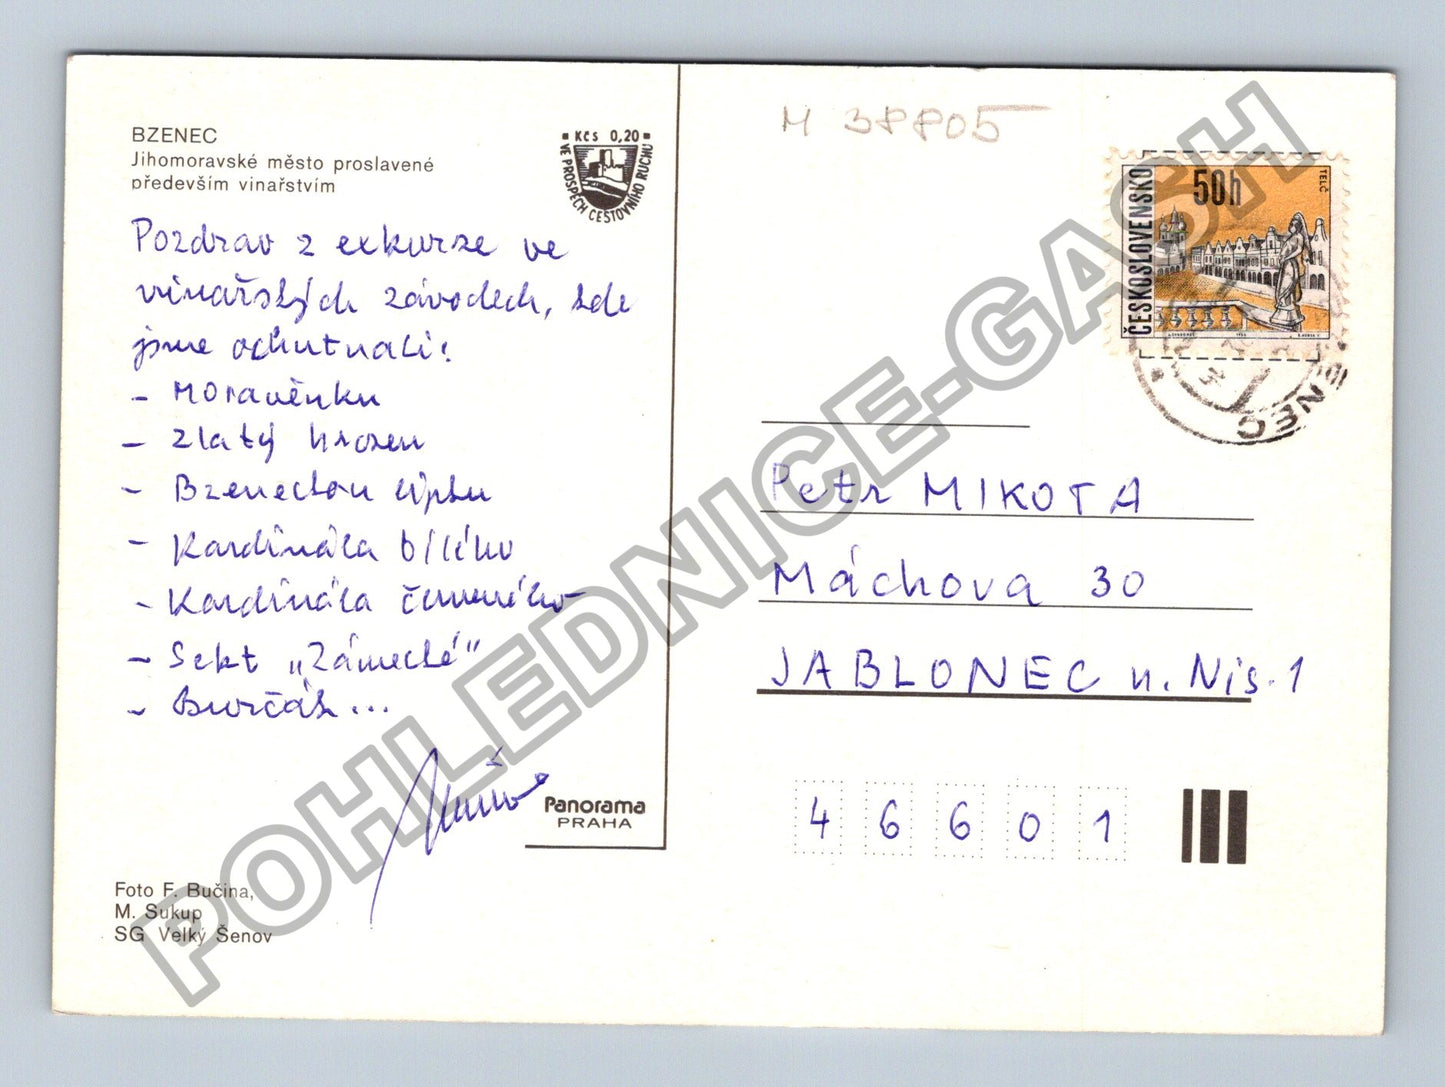 BZENEC
Jihomoravské město proslavené
především vinařstvím
Kčs 0,20
VE PROSPĚCH CESTOVNÍHO RUCHU
Pozdrav z exkurze ve
vinařských závodech, kde
jsme ochutnali:
- Moravěnku
- Zlatý hrozen
- Bzeneckou lipku
- Kardinála bílého
- Kardinála červeného
- Sekt „Zámecké"
- Burčák ...
Panorama
PRAHA
Foto F. Bučina,
M. Sukup
SG Velký Šenov
M 38805
ČESKOSLOVENSKO
50h
TELČ
BZENEC
Petr MIKOTA
Máchova 30
JABLONEC n. Nis. 1
46601
POHLEDNICE-GASH